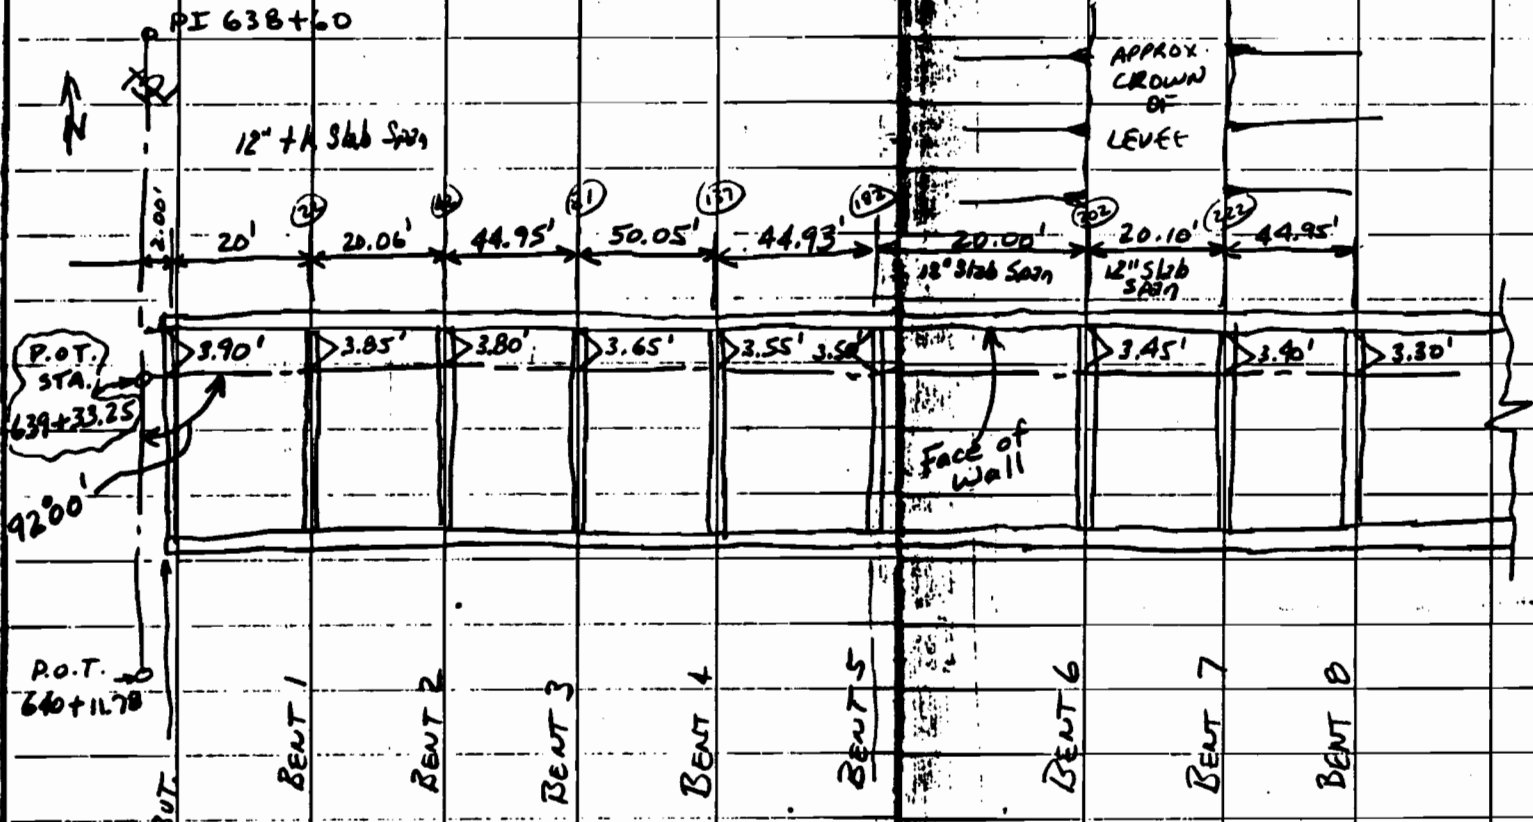 PI 638+60
N
12" +A Slab Span
APPROX.
CROWN
OF
LEVEE
2.00'
20'
20.06'
44.95'
50.05'
44.93'
20.00'
20.10'
44.95'
137
182
202
222
12" Slab Span
12" Slab
Span
P.O.T.
STA.
639+33.25
3.90'
3.85'
3.80'
3.65'
3.55'
3.45'
3.40'
3.30'
92°00'
Face of
Wall
P.O.T.
640+11.78
BENT 1
BENT 2
BENT 3
BENT 4
BENT 5
BENT 6
BENT 7
BENT 8